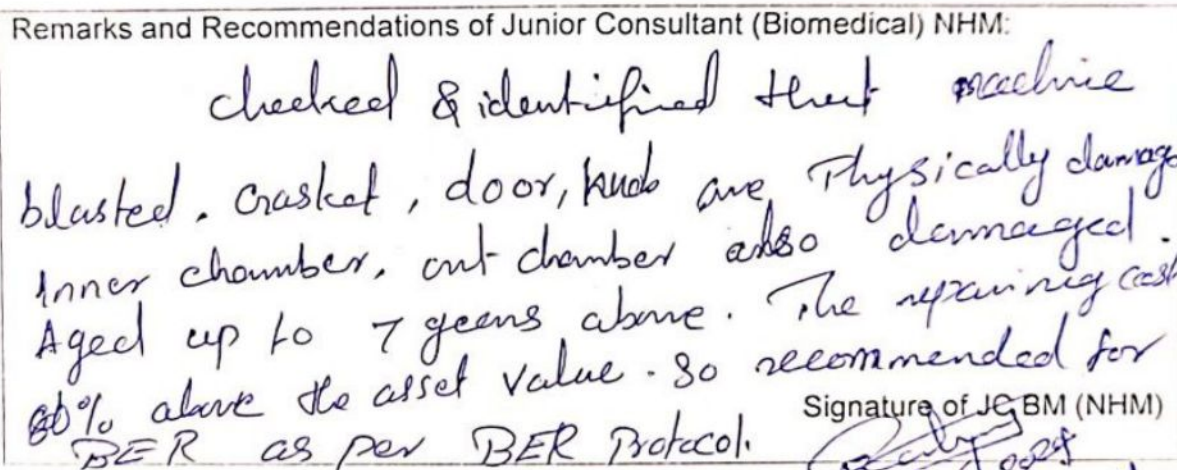 Remarks and Recommendations of Junior Consultant (Biomedical) NHM:
checked & identifined that machine
blasted. Crasket, door, knob are Physically damage
Inner chamber. out chamber also damaged.
Aged up to 7 years above. The repairing cost
% above the asset value. So recommended for
Signature of JC BM (NHM)
BER as per BER Protocol.